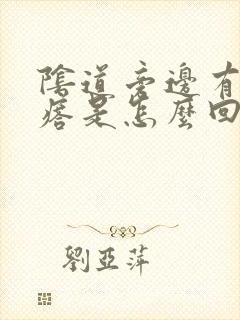 陰道旁邊有
痞是怎麼回
劉亞萍